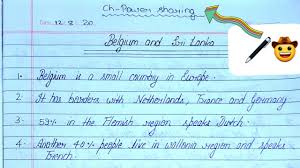 Ch-Power sharing
Date: 12-8-20
Belgium and Sri Lanka
1. Belgium is a small country in Europe.
2. It has borders with Netherlands, France and Germany
3. 59% in the Flemish region speaks Dutch.
4. Another 40% people live in wallonia region and speaks
French.